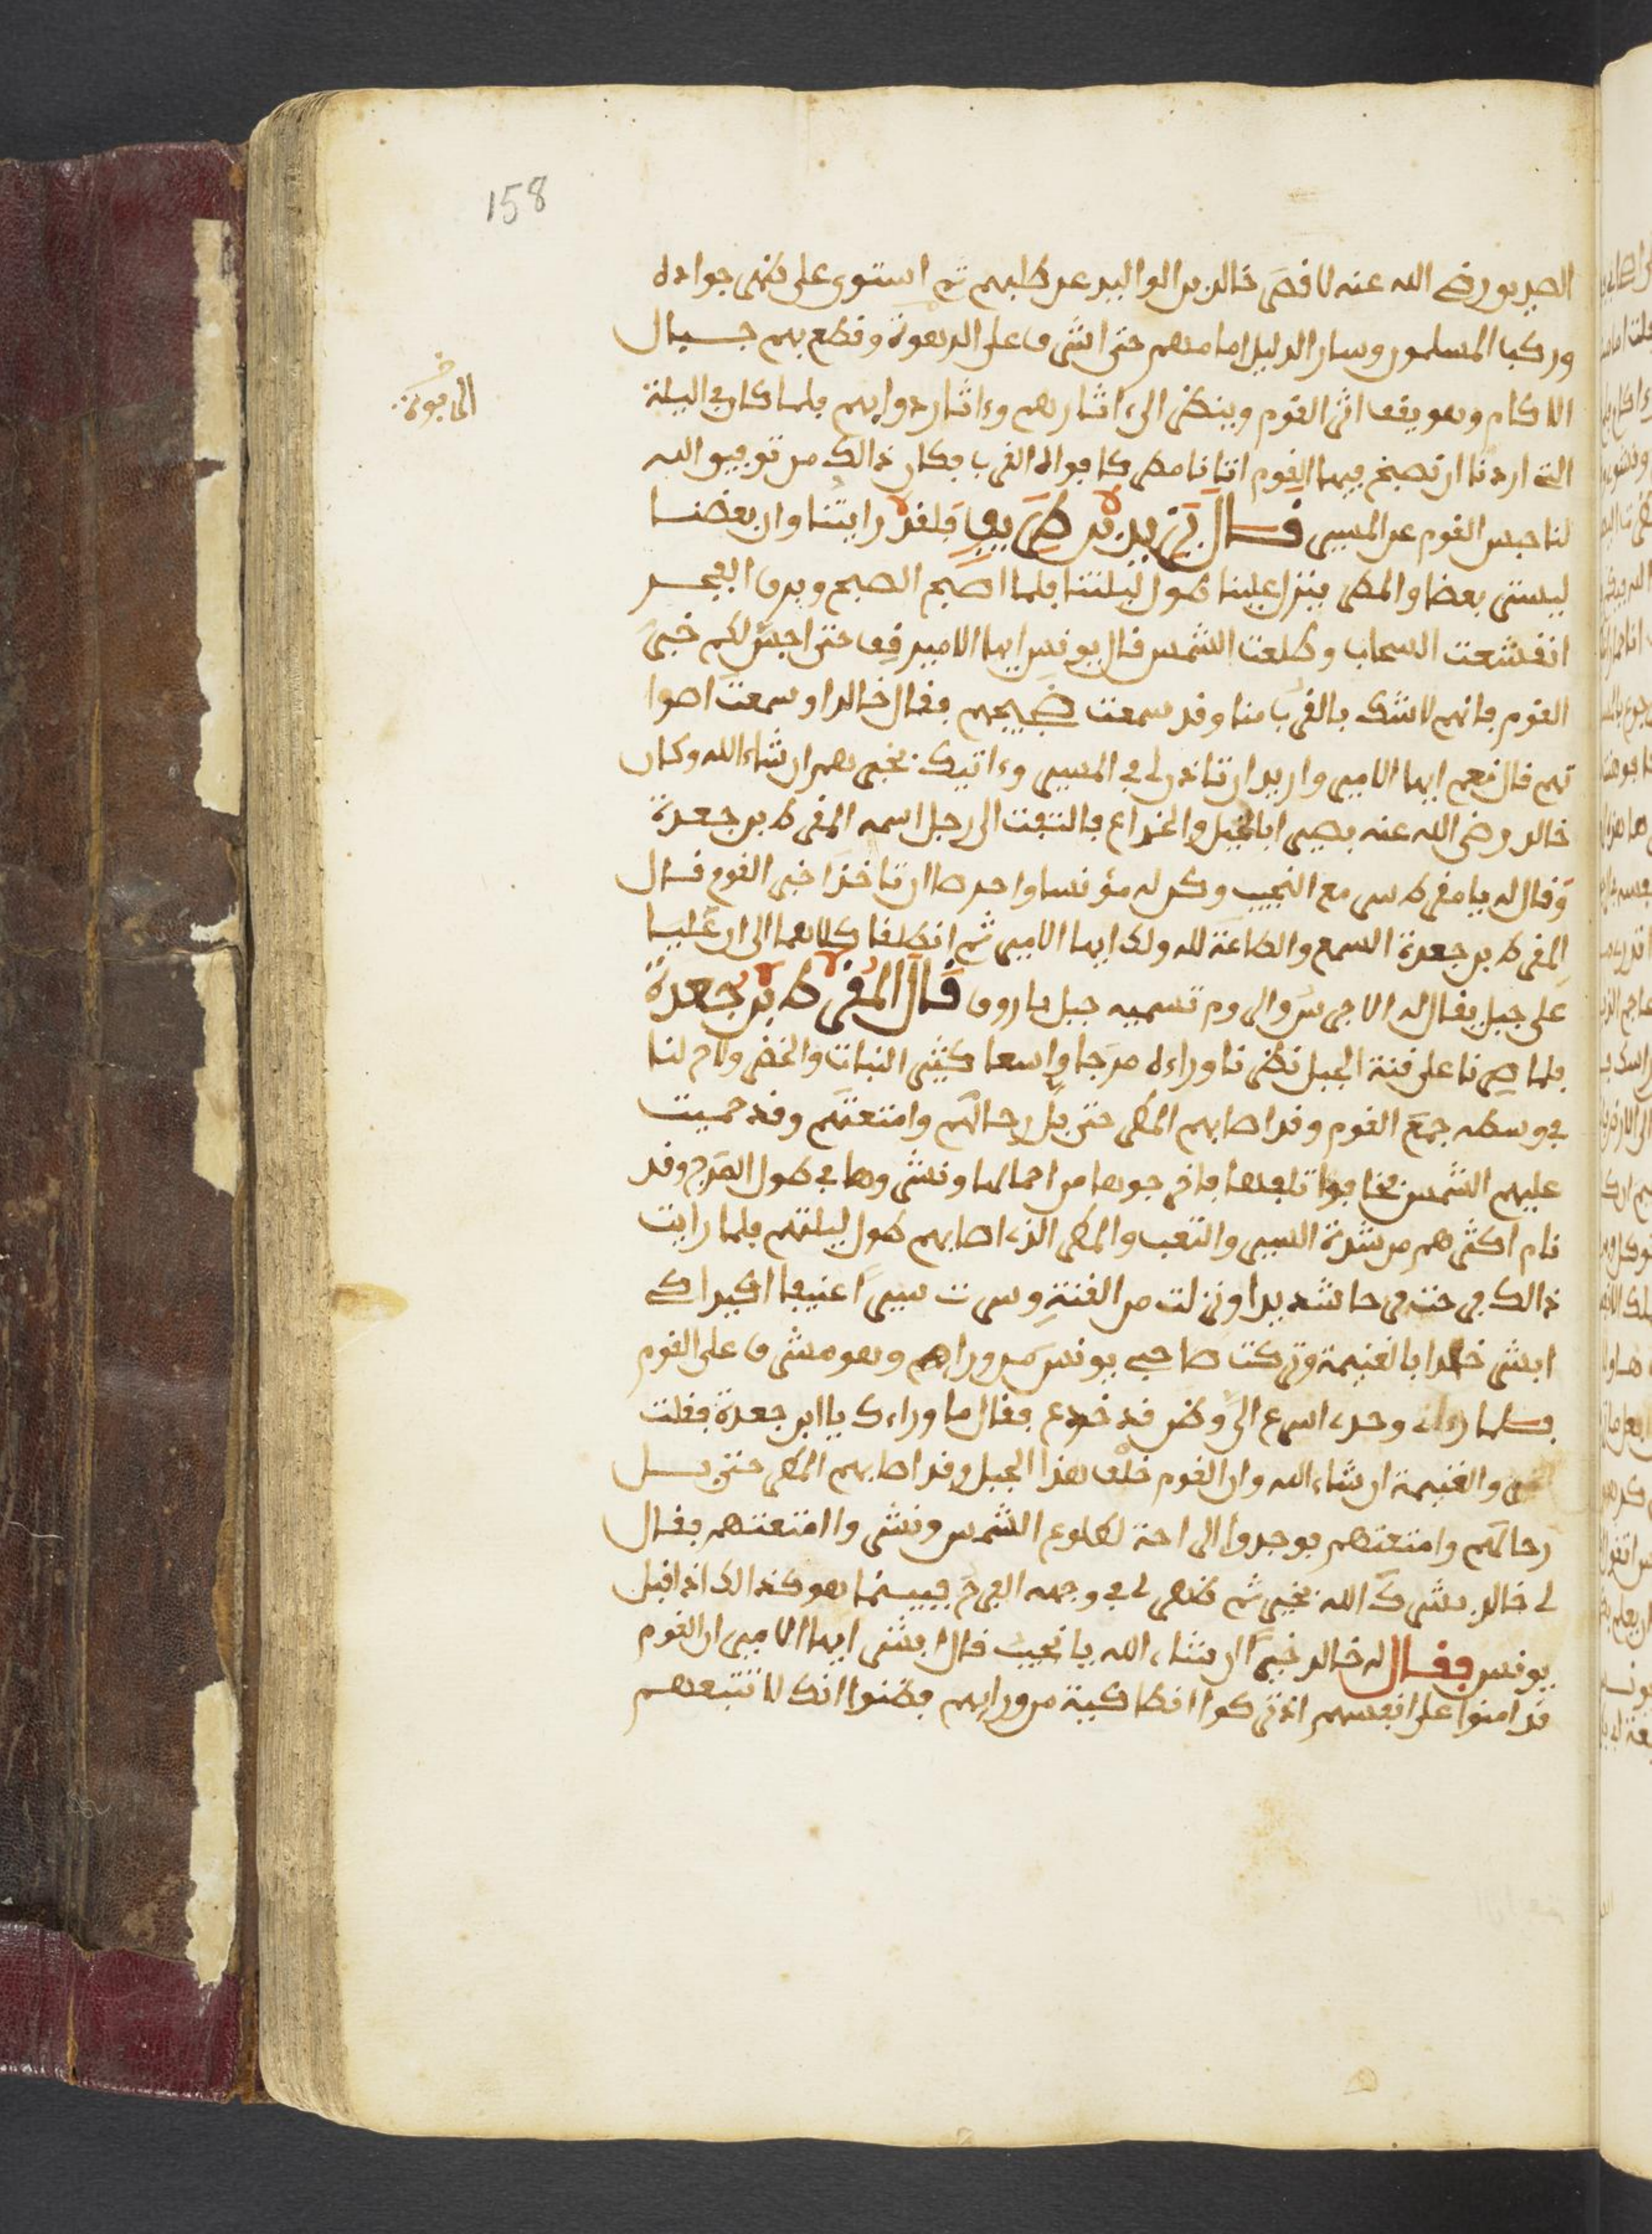 158
الصديق رضى الله عنه لا فصر خالد بن الوليد عن طلبهم ثم استوى على ظهر جواده
وركب المسلمون وسار الدليل امامهم حتى اشرف على الدهوة وقطع بهم جبال
الاكام وهو يقف اثر القوم وينظر الى ءاثارهم وءاثار دوابهم فلما كان في الليلة
التي اردنا ان نصبح فيها القوم اتانا مطر كافواه القرب فكان ذالك من توفيق الله
لنا حبس القوم عن المسير قال بن طريف فلقد رايتنا وان بعضنا
ليستر بعضا والمطر ينزل علينا طول ليلتنا فلما اصبح الصبح وبرق الفجر
انقشعت السحاب وطلعت الشمس قال يونس ايها الامير قف حتى اجس لكم خبر
القوم فانهم لا شك بالقرب منا وقد سمعت ضجيجهم فقال خالد او سمعت اصوا
تهم قال نعم ايها الامير واريد ان تاذن لي في المسير وءاتيك بخبرهم ان شاء الله وكان
خالد رضى الله عنه بصيرا بالحيل والخداع فالتفت الى رجل اسمه المفرط بن جعدة
وقال له يا مفرط سر مع النجيب وكن له مؤنسا واحرصا ان تاخذا خبر القوم قال
المفرط بن جعدة السمع والطاعة لله ولك ايها الامير ثم انطلقا كلاهما الى ان عليا
على جبل يقال له الاجرس والروم تسميه جبل باروق قال المفرط بن جعدة
فلما صرنا على قنة الجبل نظرنا وراءه مرجا واسعا كثير النبات والخضر ولاح لنا
في وسطه جمع القوم وقد اصابهم المطر حتى بل رحالهم وامتعتهم وقد حميت
عليهم الشمس فخافوا تلفها فاخرجوها من احمالها ونشروها في طول المرج وقد
نام اكثرهم من شدة السير والتعب والمطر الذي اصابهم طول ليلتهم فلما رايت
ذالك فرحت فرحا شديدا ونزلت من القنة وسرت سيرا عنيفا اكيدا كي
ابشر خالدا بالغنيمة وتركت صاحبي يونس من ورائهم وهو مشرف على القوم
فلما رءاني وحدي اسرع الي وظن قد خدع فقال ما وراءك يا ابن جعدة فقلت
والغنيمة ان شاء الله وان القوم خلف هذا الجبل وقد اصابهم المطر حتى بل
رحالهم وامتعتهم فوجدوا الراحة لطلوع الشمس ونشروا امتعتهم فقال
لي خالد بشرك الله بخير ثم ظهر لي في وجهه الفرح فبينما هو كذالك اذ اقبل
يونس فقال له خالد خيرا ان شاء الله يا نجيب قال ابشر ايها الامير ان القوم
قد امنوا على انفسهم اذ تركوا انطاكية من ورائهم فظنوا انك لا تتبعهم